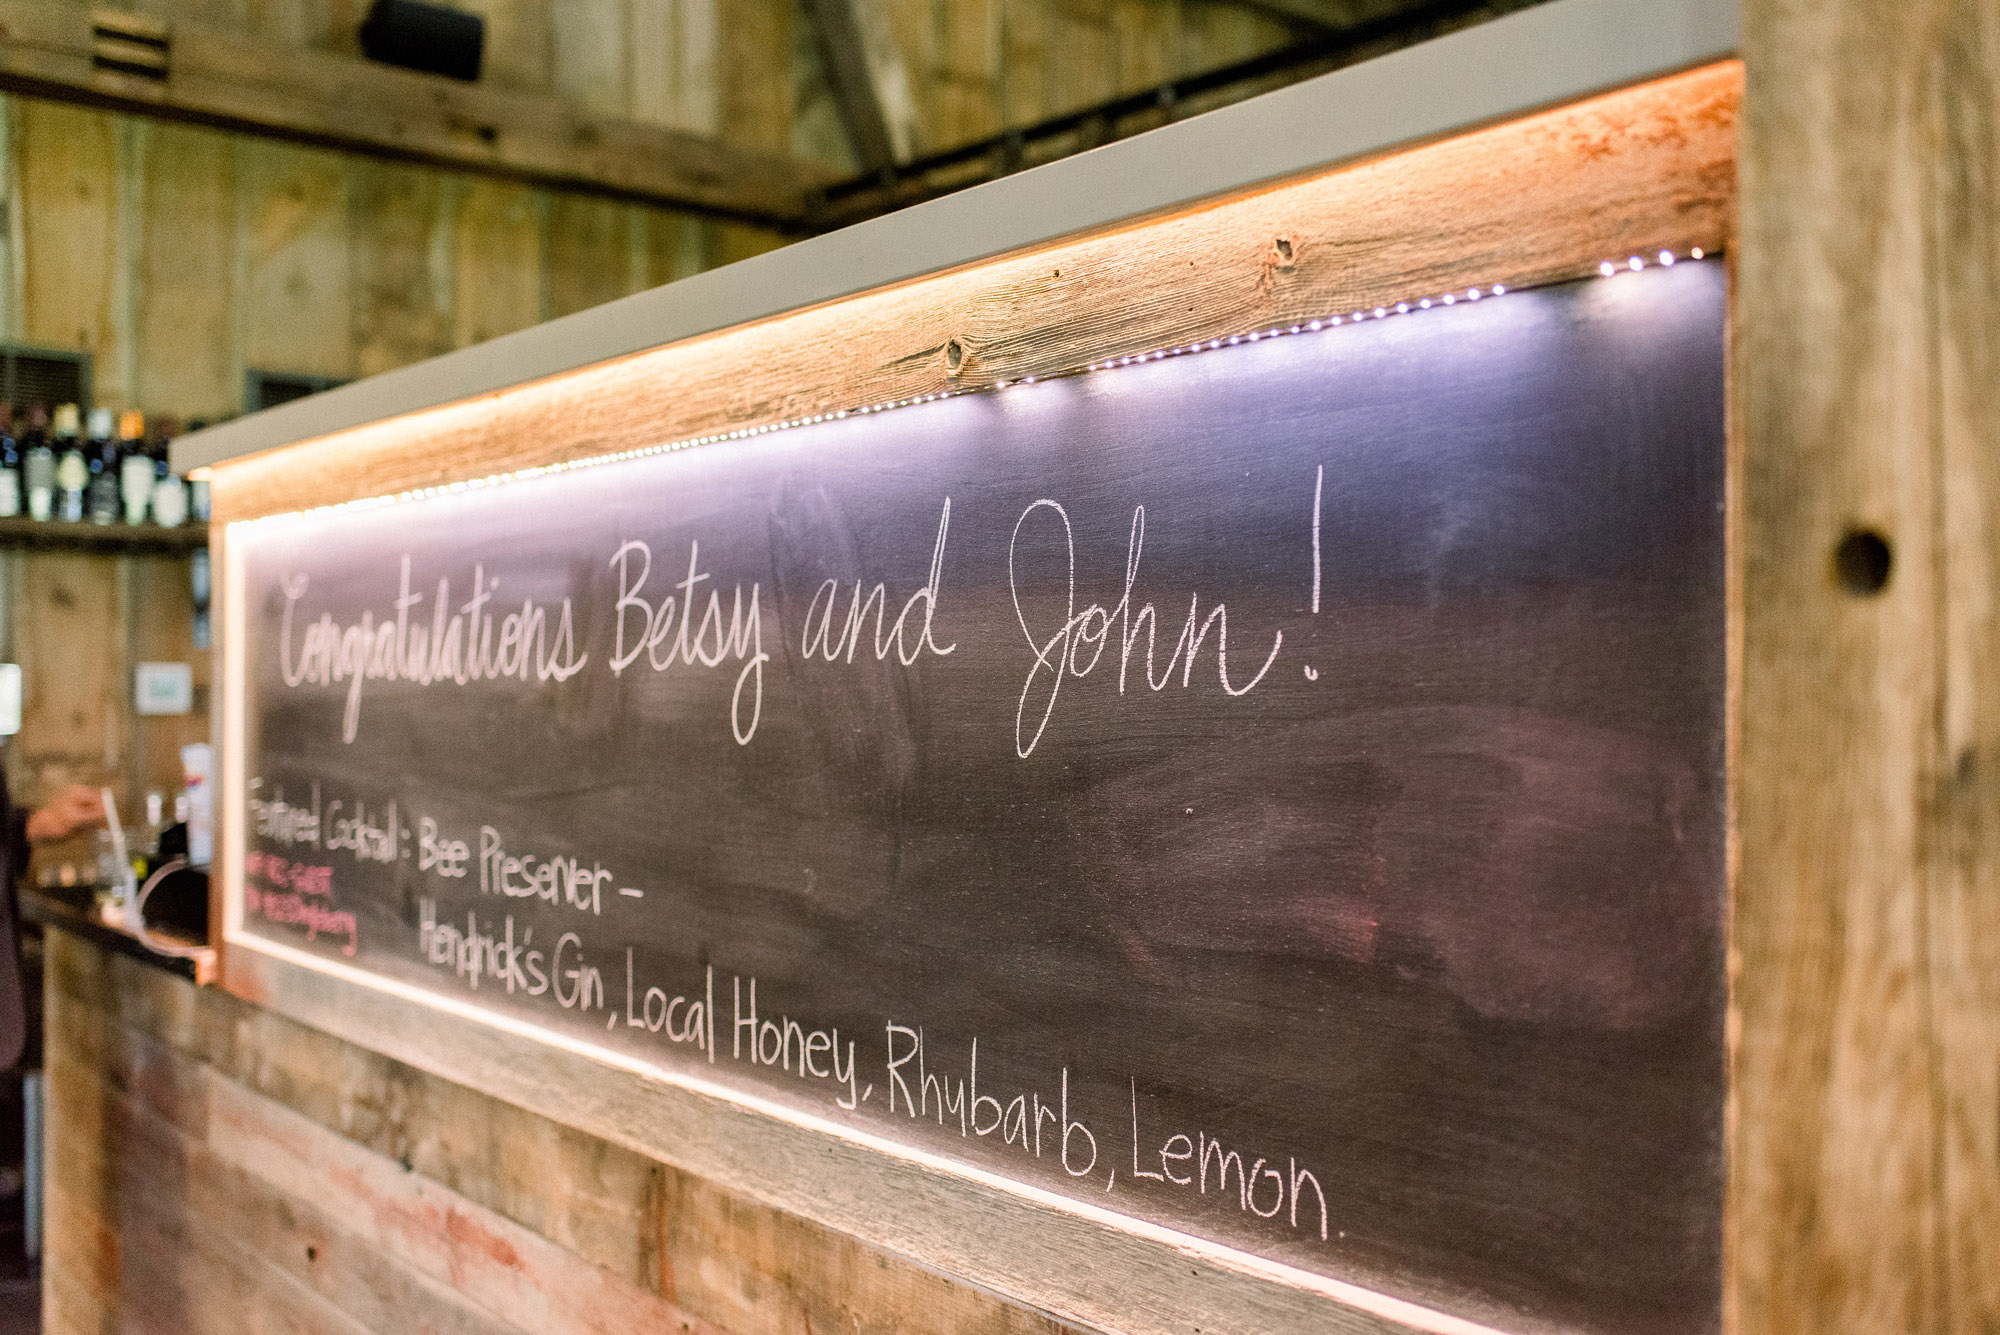 Congratulations Betsy and John!
Featured Cocktail: Bee Preserver -
Hendrick's Gin, Local Honey, Rhubarb, Lemon.